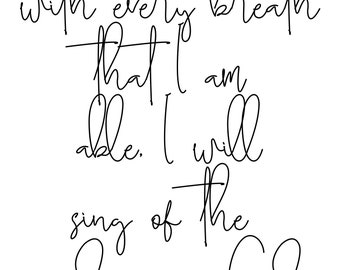 with every breath
that I am
able, I will
sing of the